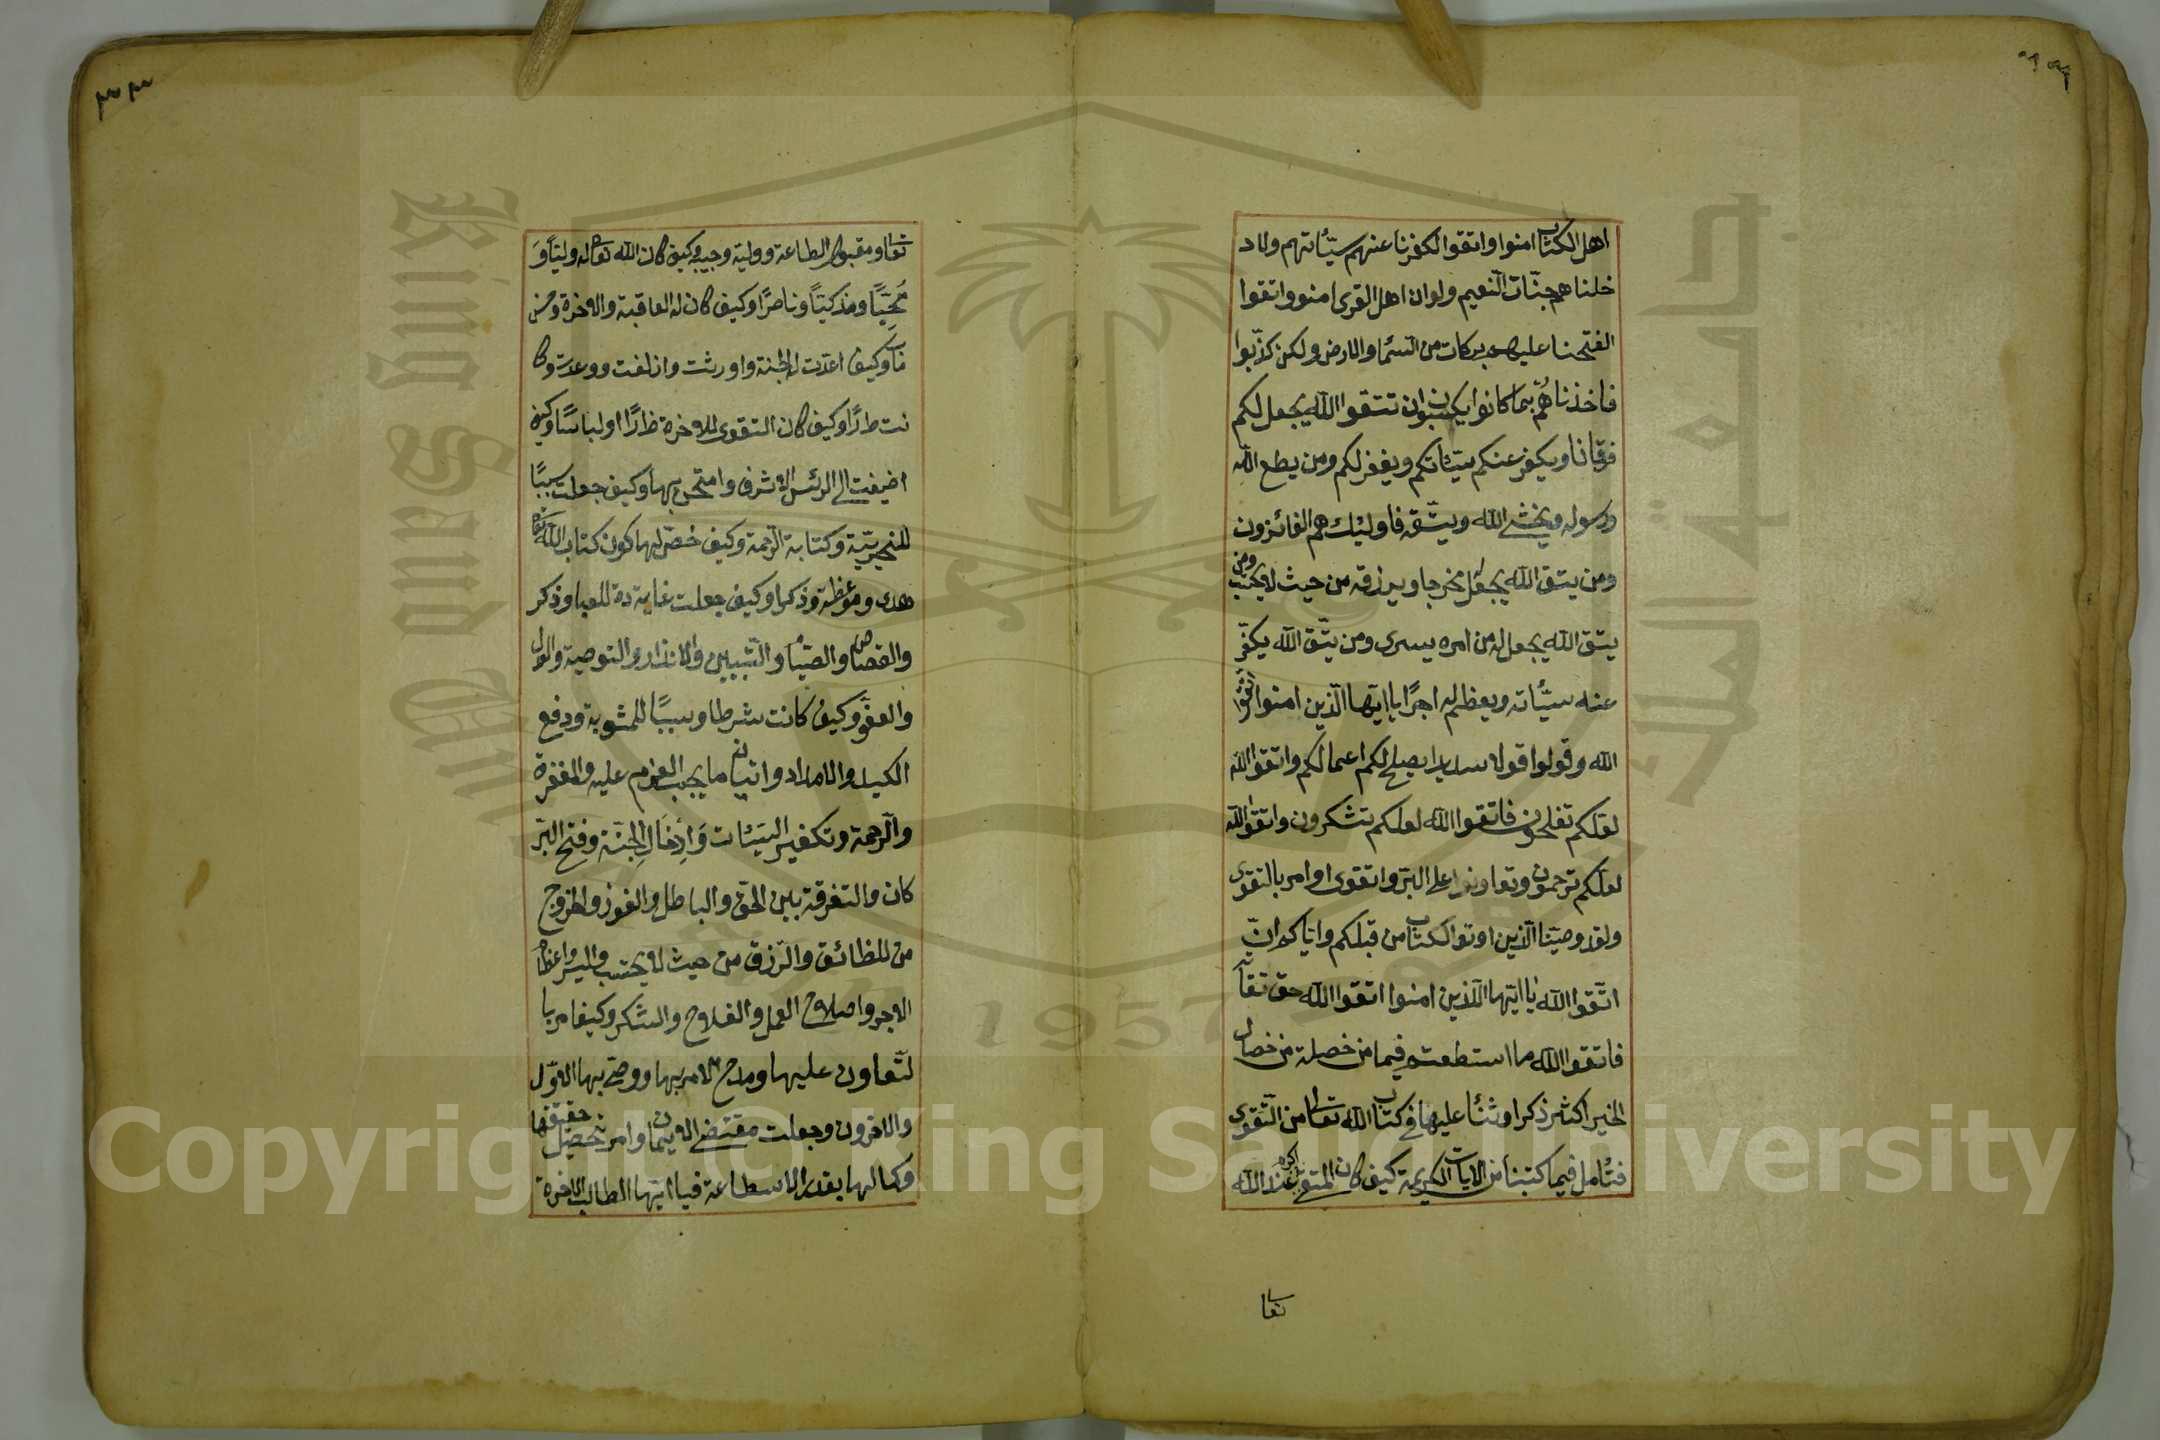 اهل الكتاب امنوا واتقوا لكفرنا عنهم سيّئاتهم ولاد
خلناهم جنّات النعيم ولو ان اهل القرى امنو واتقوا
الفتحنا عليهم بركات من السّما والارض ولكن كذّبوا
فاخذناهم بما كانوا يكسبون ان تتقوا الله يجعل لكم
فرقانا ويكفر عنكم سيّئاتكم ويغفر لكم ومن يطع الله
ورسوله ويخشى الله ويتّقه فاولئك هم الفائزون
ومن يتق الله يجعل له مخرجا ويرزقه من حيث لا يحتسب ومن
يتق الله يجعل له من امره يسرى ومن يتّق الله يكفّر
عنه سيّئاته ويعظم له اجرًا يا ايّها الّذين امنوا اتقوا
الله وقولوا قولا سديدا يصلح لكم اعمالكم واتقوا الله
لعلّكم تفلحون فاتقوا الله لعلكم تشكرون واتقوا الله
لعلّكم ترحمون وتعاونوا على البرّ واتقوى او امر بالتقوى
ولقد وصيّنا الّذين اوتو الكتاب من قبلكم وايّاكم انّ
اتّقوا الله يا ايّها الّذين امنوا اتقوا الله حق تقاته
فاتقوا الله ما استطعتم فيما من خصلة من خصال
الخير اكثر ذكرا وثناء عليها في كتاب الله تعالى من التّقوى
فتأمل فيما كتبنا من الايات الكريمة كيف كان المتقى اكرم عند الله
تعا
تعالى ومقبول الطاعة ووليّه وحبيبه وكيف كان الله تعالى له وليّا وَ
مُحِبًّا ومزكيّا وناصرًا وكيف كان له العاقبة والاخرة وحسن
مآب وكيف اعدّت له الجنة واورثت وازلفت ووعدت وكا
نت دارًا وكيف كان التقوى للاخرة زادًا او لباسًا وكيف
اضيفت الى الرئس الاشرف وامتحن بها وكيف جعلت سببًا
للخيريّة وكتابة الرّحمة وكيف خصّ لها كون كتاب الله تعالى
هدى وموعظة وذكرا وكيف جعلت غاية للعبادة وذكر
والقصاص والصّيام والتّبيين والانذار والتوصية والعدل
والعفو وكيف كانت شرطا وسببًا للمثوبة ودفع
الكيد والامداد واتيان ما يجب العزم عليه والمغفرة
والرّحمة وتكفير السّيّئات وَاِدْخَالِ الجنّة وفتح البرّ
كات والتفرقة بين الحقّ والباطل والفوز والخروج
من المضائق والرّزق من حيث لا يحتسب واليسر واعظام
الاجر واصلاح العمل والفلاح والشّكر وكيف امر با
لتّعاون عليها ومدح الامر بها ووصّى بها الاوّلون
والاخرون وجعلت مقتضى الايمان وامر بتحصيل حقيقتها
وكمالها بقدر الاسطاعة فيا ايّها الطالب الاخرة